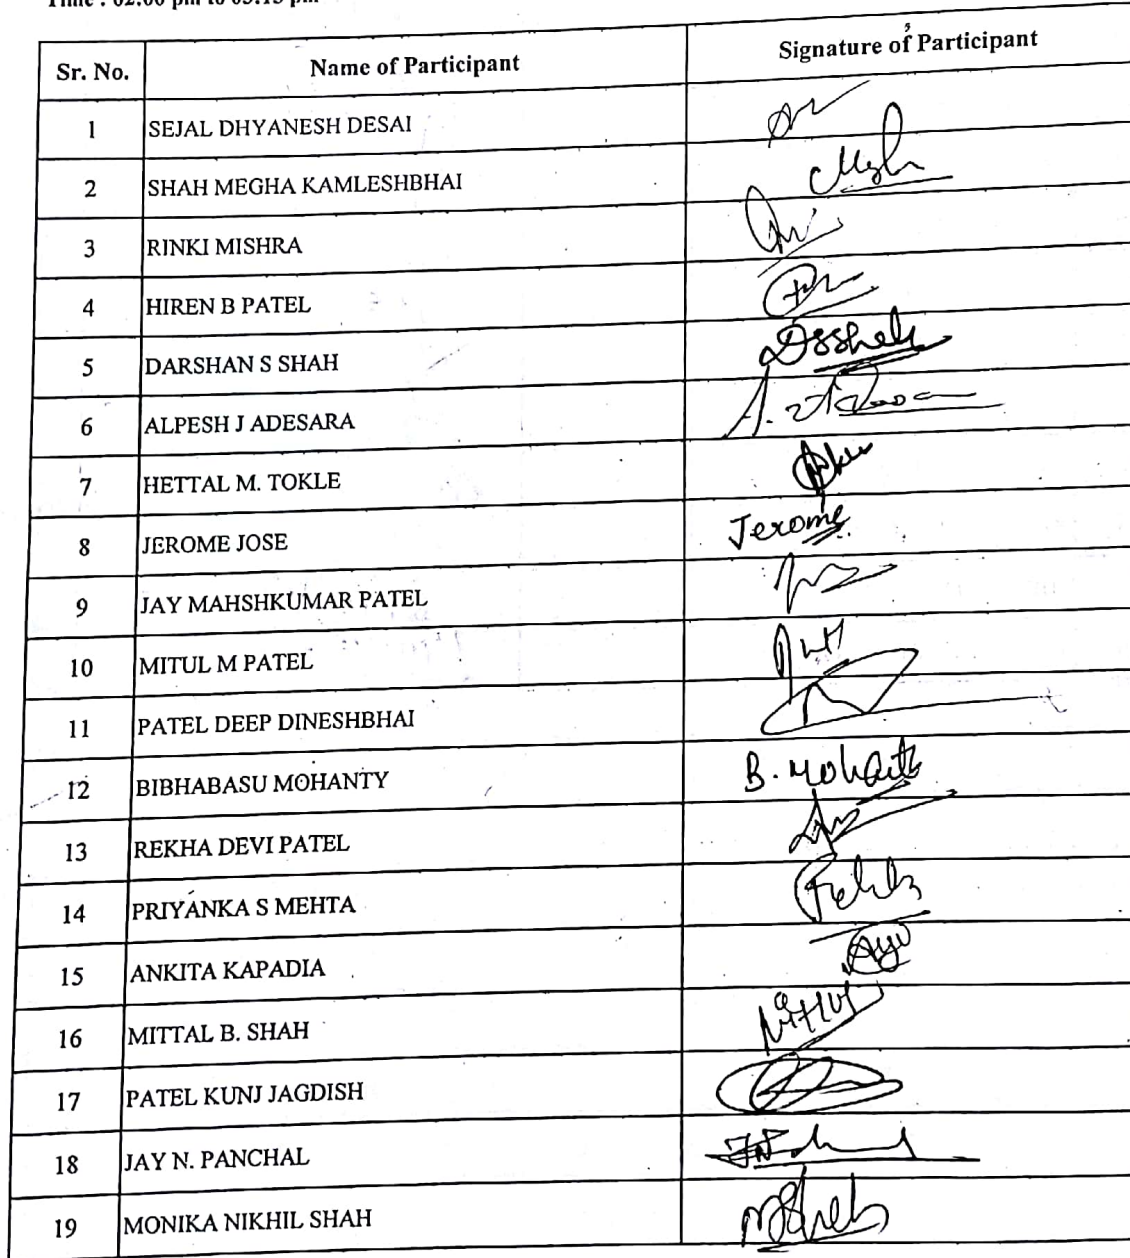 Time : 02:00 pm to 03:15 pm
Sr. No. Name of Participant Signature of Participant
1 SEJAL DHYANESH DESAI
2 SHAH MEGHA KAMLESHBHAI
3 RINKI MISHRA
4 HIREN B PATEL
5 DARSHAN S SHAH DSShah
6 ALPESH J ADESARA
7 HETTAL M. TOKLE
8 JEROME JOSE Jerome
9 JAY MAHSHKUMAR PATEL
10 MITUL M PATEL
11 PATEL DEEP DINESHBHAI
12 BIBHABASU MOHANTY B. Mohanty
13 REKHA DEVI PATEL
14 PRIYANKA S MEHTA
15 ANKITA KAPADIA
16 MITTAL B. SHAH
17 PATEL KUNJ JAGDISH
18 JAY N. PANCHAL
19 MONIKA NIKHIL SHAH